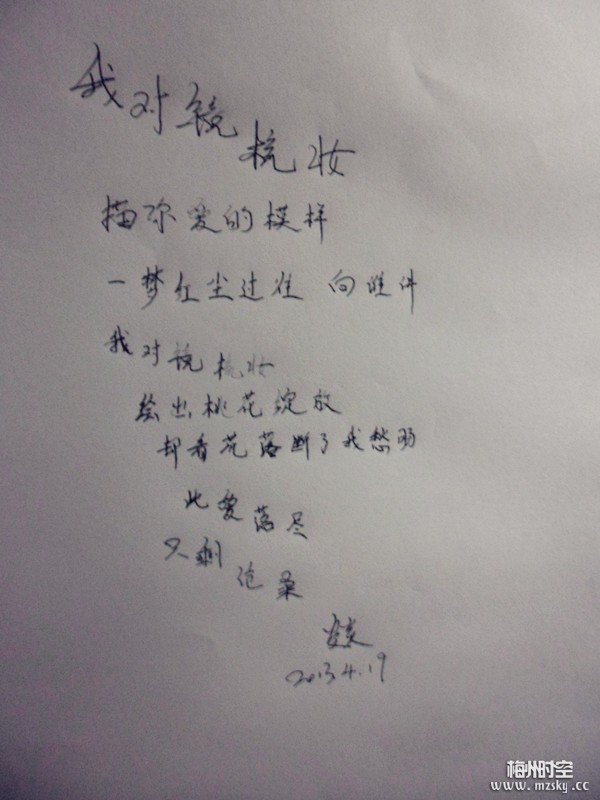 我对镜梳妆
描你爱的模样
一梦红尘过往 向谁
我对镜梳妆
绘出桃花绽放
却看花落断了我愁肠
此爱落尽
只剩沧桑
2013.4.19
梅州时空
www.mzsky.cc